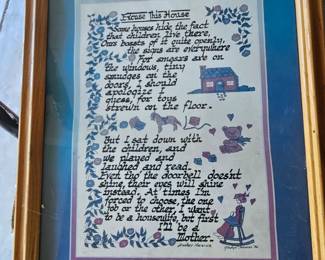 Excuse This House
Some houses hide the fact
that children live there,
Ours boasts of it quite openly,
the signs are everywhere
For smears are on
the windows, tiny
smudges on the
doors, I should
apologize I
guess, for toys
strewn on the floor.
But I sat down with
the children, and
we played and
laughed and read.
Even tho the doorbell doesnt
shine, their eyes will shine
instead. At times I'm
forced to choose, the one
job or the other, I want
to be a housewife, but first
I'll be a
Mother.